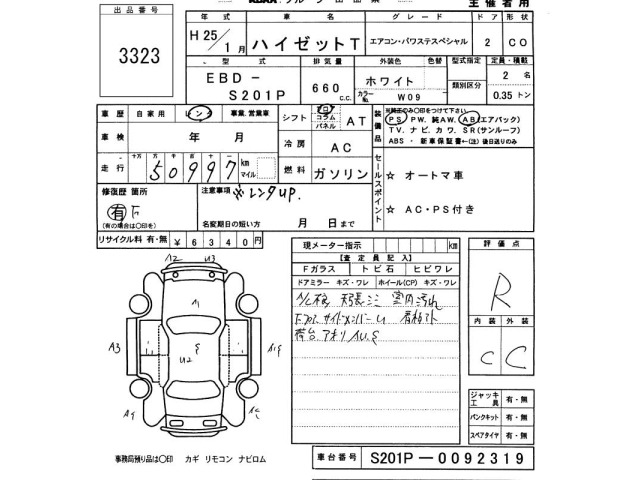 主催者用
出品番号
3323
年式 車名 グレード ドア 形状
H25/1月 ハイゼットT エアコン・パワステスペシャル 2 CO
型式 排気量 外装色 色替 型式指定 定員・積載
EBD-
S201P
660 c.c.
ホワイト
カラーNo. W09
類別区分
2 名
0.35 トン
車歴 自家用 レンタ 事業.営業車
車検 年 月
走行 十万 万 千 百 十 km マイル
50997
シフト コラム パネル AT
冷房 AC
燃料 ガソリン
装備品
※純正のみ〇印をつけて下さい。
PS PW. 純AW. AB(エアバック)
TV. ナビ. カワ. SR(サンルーフ)
ABS ・ 新車保証書←(注)後日送りのみ
セールスポイント
☆ オートマ車
☆ AC・PS付き
修復歴 箇所
有
(有の場合は〇印を)
注意事項 ※レンタUP.
名変期日の短い方 月 日まで
リサイクル料 有・無 ¥ 6340円
現メーター指示 km
【査定員記入】
Fガラス トビ石 ヒビワレ
ドアミラー キズ・ワレ ホイール(CP) キズ・ワレ
室内汚れ
荷台 アオリ AU.S
評価点
R
内装 外装
C C
ジャッキ 工具 有・無
パンクキット 有・無
スペアタイヤ 有・無
A2 U3
A1
A3 U2 S
A4
事務局預り品は〇印 カギ リモコン ナビロム
車台番号 S201P-0092319